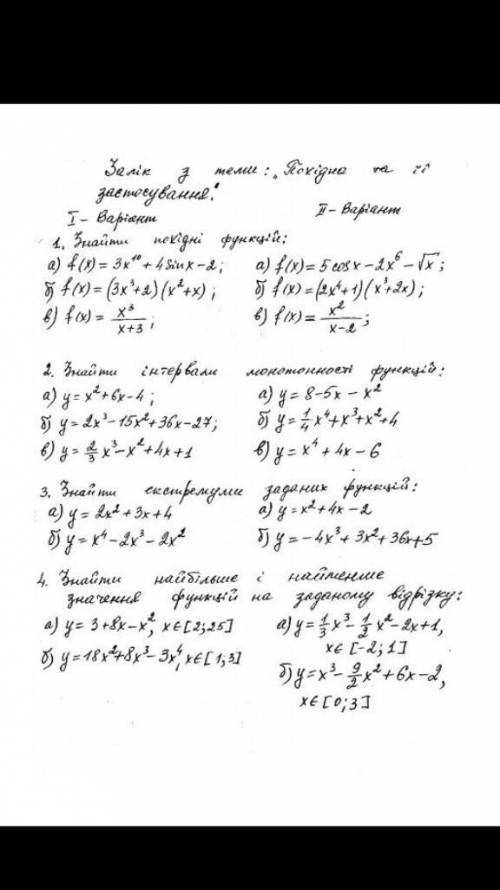 Залік з теми: „Похідна та її
застосування."
I - Варіант
II - Варіант
1. Знайти похідні функцій:
а) f(x) = 3x¹⁰ + 4sinx - 2;
а) f(x) = 5cosx - 2x⁶ - √x;
б) f(x) = (3x³+2)(x²+x);
б) f(x) = (2x⁴+1)(x³+2x);
в) f(x) = x³/(x+3);
в) f(x) = x²/(x-2);
2. Знайти інтервали монотонності функцій:
а) y = x² + 6x - 4;
а) y = 8 - 5x - x²
б) y = 2x³ - 15x² + 36x - 27;
б) y = 1/4 x⁴ + x³ + x² + 4
в) y = 2/3 x³ - x² + 4x + 1
в) y = x⁴ + 4x - 6
3. Знайти екстремуми заданих функцій:
а) y = 2x² + 3x + 4
а) y = x² + 4x - 2
б) y = x⁴ - 2x³ - 2x²
б) y = -4x³ + 3x² + 36x + 5
4. Знайти найбільше і найменше
значення функцій на заданому відрізку:
а) y = 3 + 8x - x², x∈[2; 25]
а) y = 1/3 x³ - 1/2 x² - 2x + 1,
x∈[-2; 1]
б) y = 18x² + 8x³ - 3x⁴, x∈[1; 3]
б) y = x³ - 9/2 x² + 6x - 2,
x∈[0; 3]